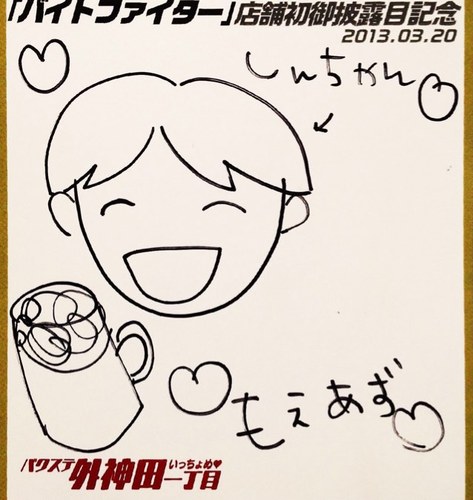 「バイトファイター」店舗初御披露目記念
2013.03.20
しんちゃん
もえあず
バクステ外神田一丁目
いっちょめ♥